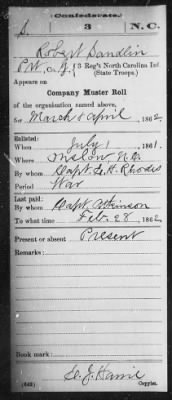 Confederate.
S. 3 N.C.
Robert Sandlin
Pvt, Co. G, 3 Reg't North Carolina Inf
(State Troops)
Appears on
Company Muster Roll
of the organization named above,
for March & April, 1862
Enlisted:
When July 1, 1861.
Where Onslow N.C.
By whom Capt. E. H. Rhodes
Period War
Last paid:
By whom Capt. Atkinson
To what time Feb. 28, 1862
Present or absent Present
Remarks:
Book mark:
(642) Copyist.